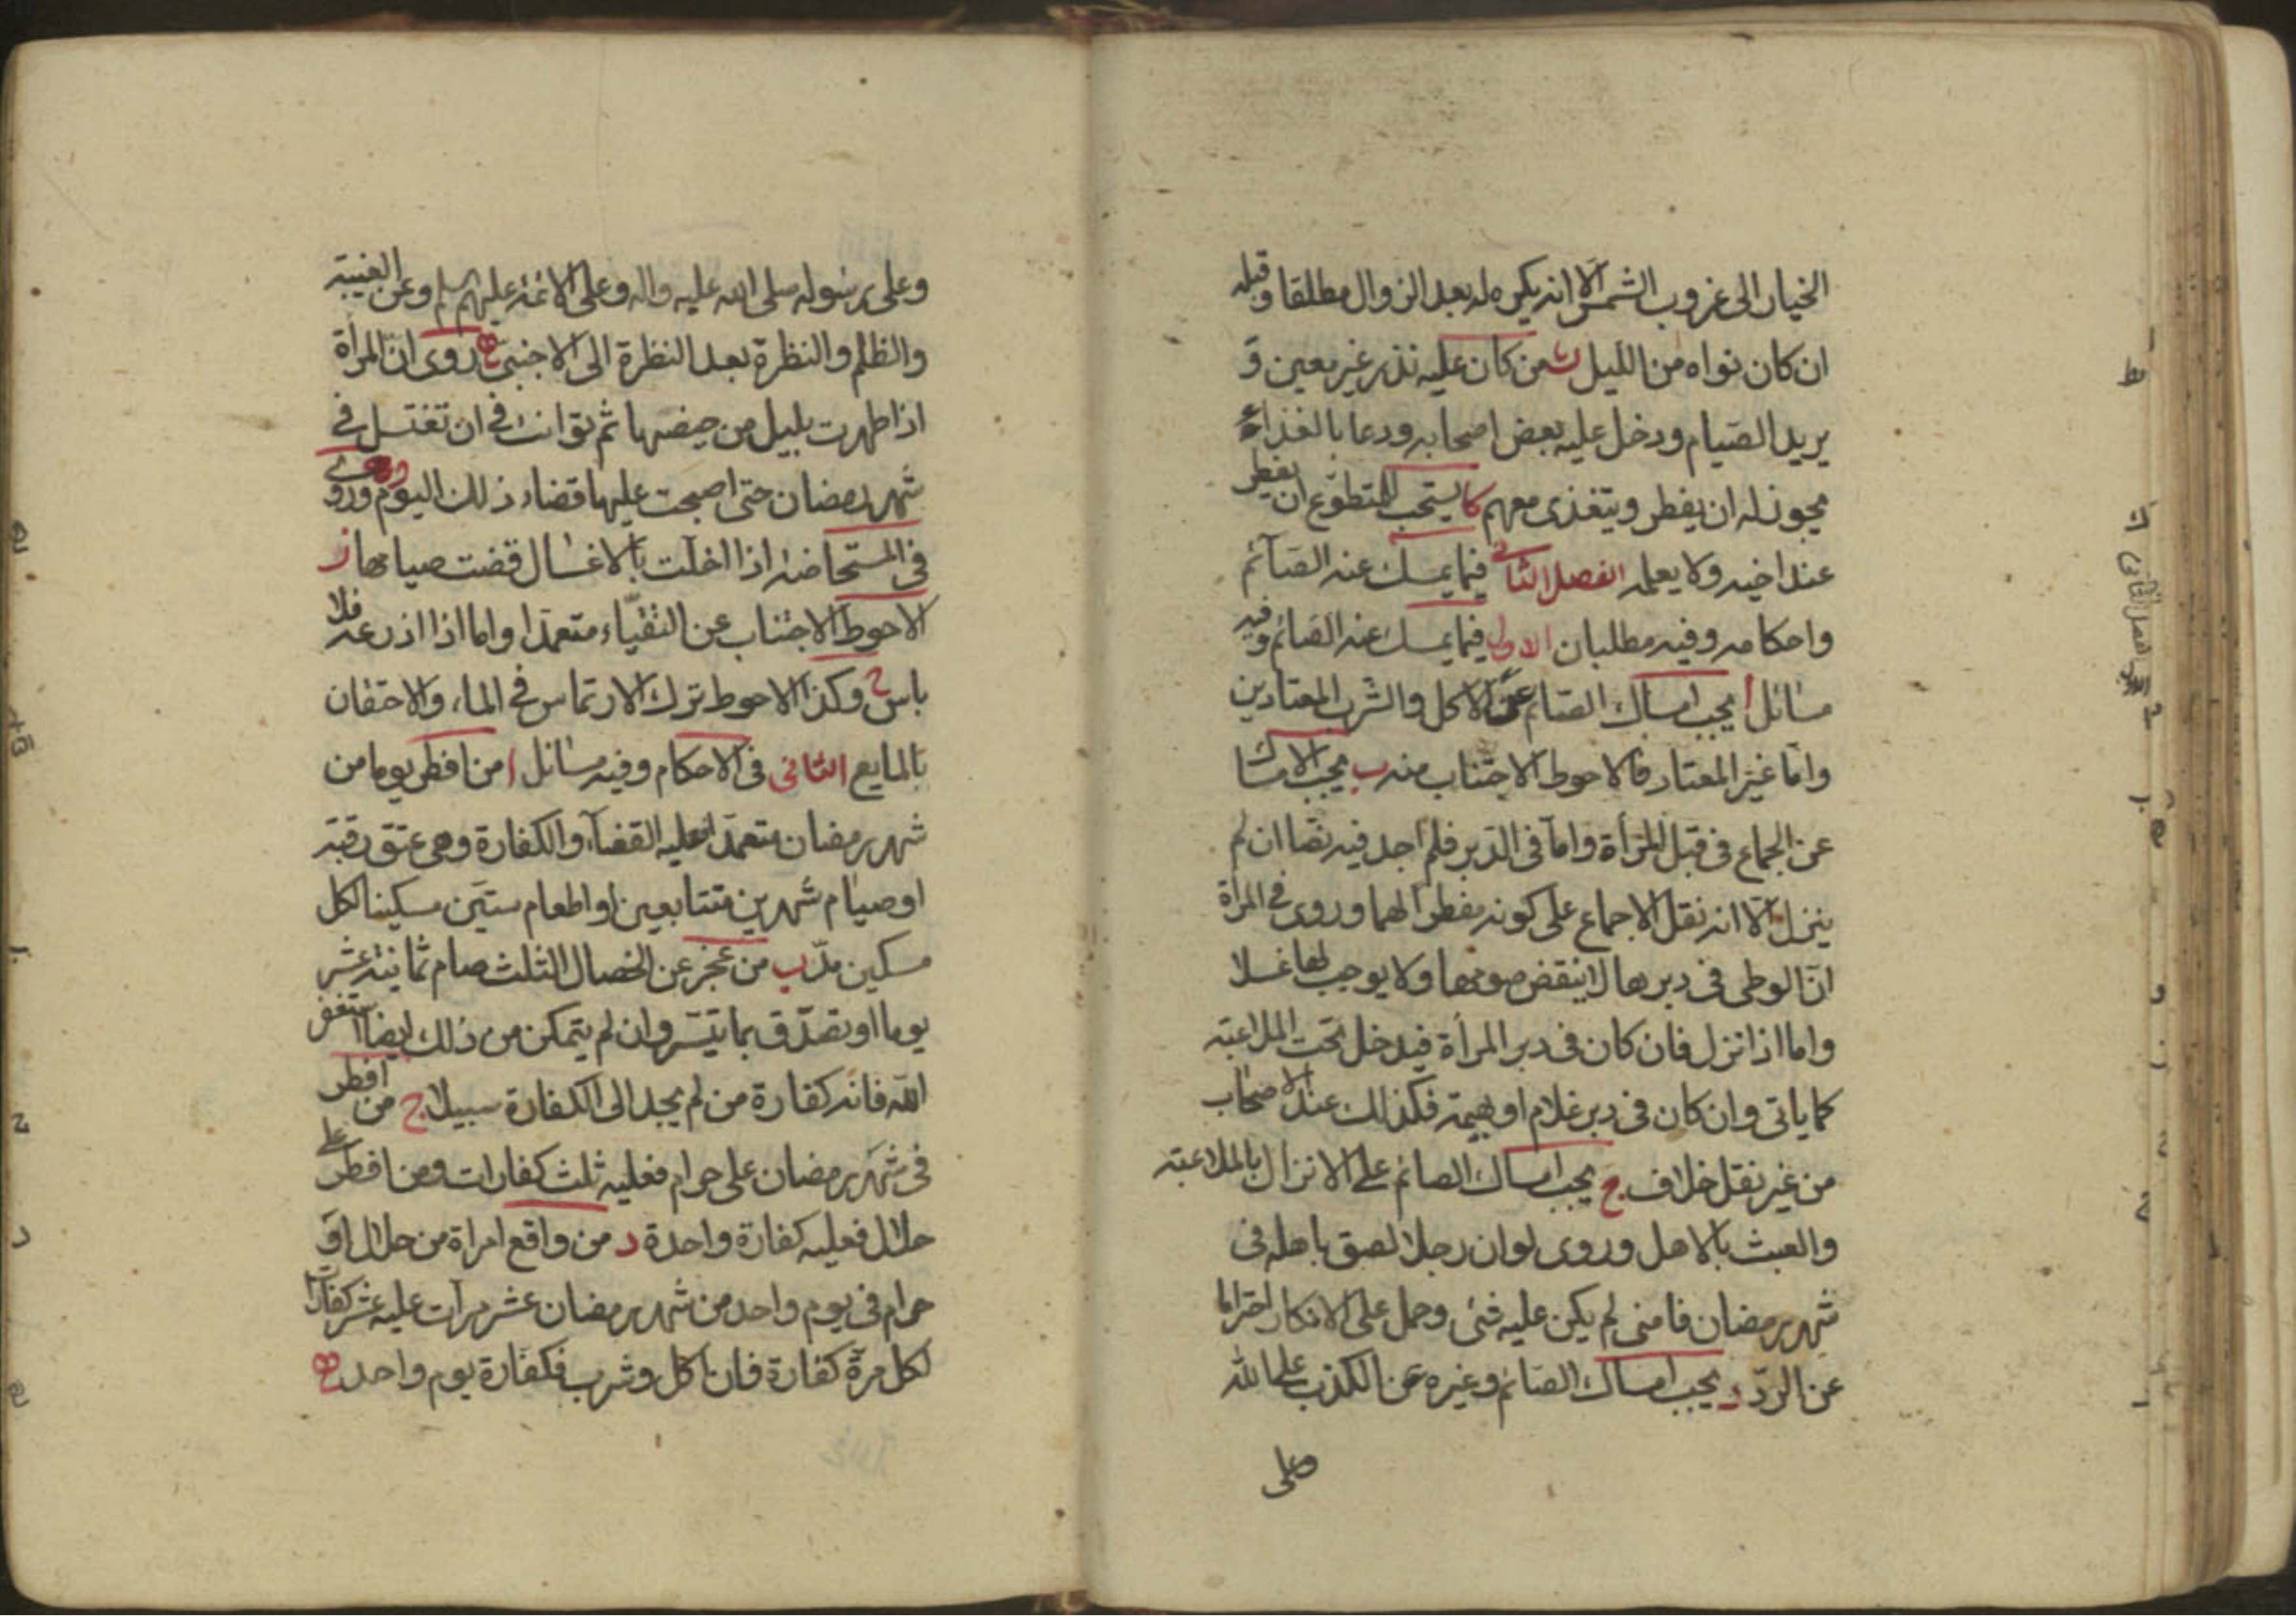 الخيار الى غروب الشمس الا انه يكره له بعد الزوال مطلقا وقبله
ان كان نواه من الليل ك من كان عليه نذر غير معين و
يريد الصيام ودخل عليه بعض اصحابه ودعا بالغذاء
يجوز له ان يفطر ويتغذى معهم كا يستحب للمتطوع ان يفطر
عند اخيه ولا يعلمه الفصل الثاني فيما يمسك عنه الصائم
واحكامه وفيه مطلبان الاول فيما يمسك عنه الصائم وفيه
مسائل ا يجب امساك الصائم عن الاكل والشرب المعتادين
واما غير المعتاد فالاحوط الاجتناب منه ب يجب الامساك
عن الجماع في قبل المرأة واما في الدبر فلم اجد فيه نصا ان لم
ينزل الا انه نقل الاجماع على كونه مفطرا لهما وروى في المرأة
ان الوطى في دبرها لا ينقض صومها ولا يوجب لها غسلا
واما اذا نزل فان كان في دبر المرأة فيدخل تحت الملاعبة
كما ياتى وان كان في دبر غلام او بهيمة فكذلك عند الاصحاب
من غير نقل خلاف ج يجب امساك الصائم على الانزال بالملاعبة
والعبث بالاهل وروى لو ان رجلا لصق باهله في
شهر رمضان فامنى لم يكن عليه شئ وحمل على الانكار احترازا
عن الرد د يجب امساك الصائم وغيره عن الكذب على الله
وعلى
وعلى رسوله صلى الله عليه واله وعلى الائمة عليهم السلم وعن الغيبة
والظلم والنظرة بعد النظرة الى الاجنبى ه روى ان المرأة
اذا طهرت بليل من حيضها ثم توانت في ان تغتسل في
شهر رمضان حتى اصبحت عليها قضاء ذلك اليوم و وروى
في المستحاضة اذا اخلت بالاغسال قضت صيامها ز
الاحوط الاجتناب عن التقياء متعمدا واما اذا اذرعه فلا
باس ح وكذا الاحوط ترك الارتماس في الماء والاحتقان
بالمايع الثانى في الاحكام وفيه مسائل ا من افطر يوما من
شهر رمضان متعمدا عليه القضاء والكفارة وهى عتق رقبة
او صيام شهرين متتابعين او اطعام ستين مسكينا لكل
مسكين مد ب من عجز عن الخصال الثلث صام ثمانية عشر
يوما او تصدق بما تيسر وان لم يتمكن من ذلك ايضا استغفر
الله فانه كفارة من لم يجد الى الكفارة سبيلا ج من افطر
في شهر رمضان على حرام فعليه ثلث كفارات ومن افطر على
حلال فعليه كفارة واحدة د من واقع امراة من حلال او
حرام في يوم واحد من شهر رمضان عشر مرات عليه عشر كفارات
لكل مرة كفارة فان اكل وشرب فكفارة يوم واحد ه